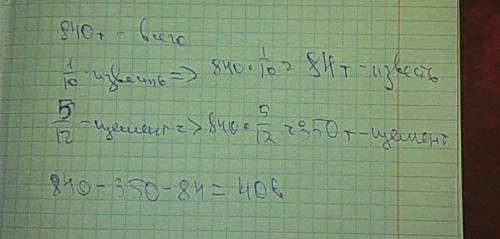 840т - всего
1/10 - известь => 840 · 1/10 = 84т - известь
5/12 - цемент => 840 · 5/12 = 350т - цемент
840 - 350 - 84 = 406